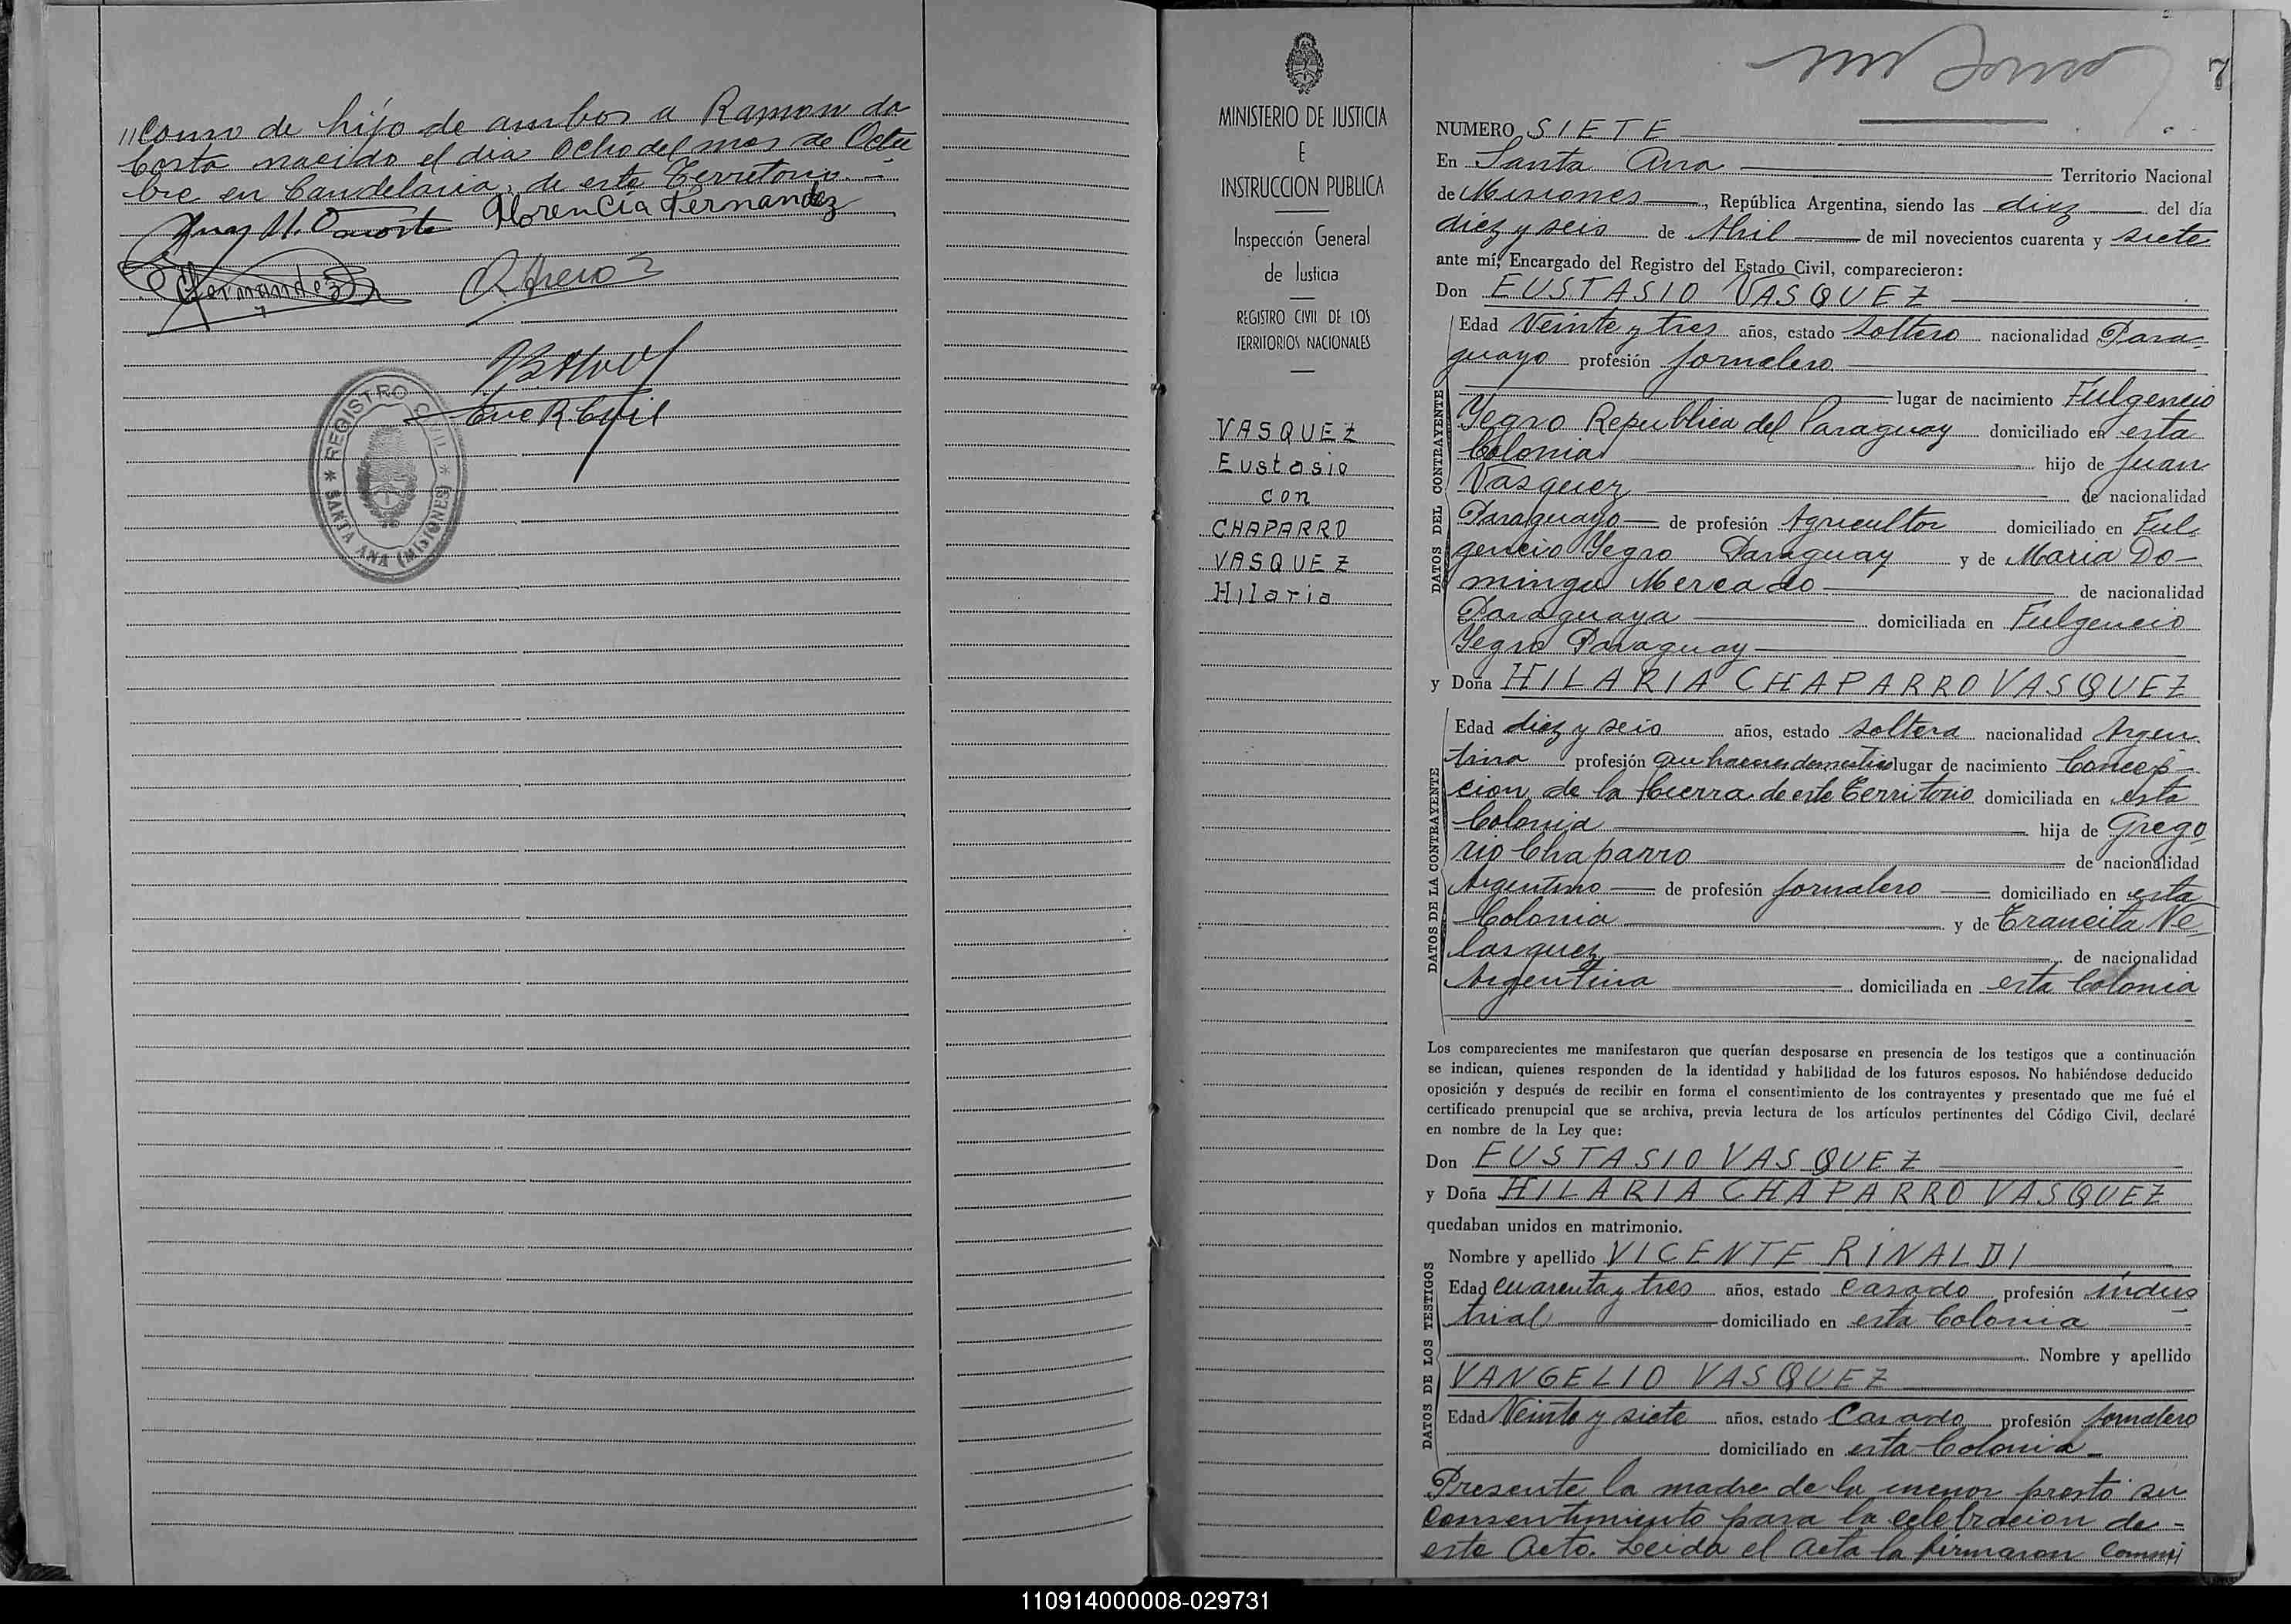 // Como de hijo de ambos a Ramon da
Costa nacido el dia Ocho del mes de Octu
bre en Candelaria, de este Territorio.-
Florencia Fernandez
Fernandez
Enc R Civil
REGISTRO CIVIL
SANTA ANA (MISIONES)
7
MINISTERIO DE JUSTICIA
E
INSTRUCCION PUBLICA
Inspección General
de Justicia
REGISTRO CIVIL DE LOS
TERRITORIOS NACIONALES
VASQUEZ
Eustasio
con
CHAPARRO
VASQUEZ
Hilaria
NUMERO SIETE
En Santa Ana Territorio Nacional
de Misiones, República Argentina, siendo las diez del día
diez y seis de Abril de mil novecientos cuarenta y siete
ante mí, Encargado del Registro del Estado Civil, comparecieron:
Don EUSTASIO VASQUEZ
DATOS DEL CONTRAYENTE
Edad Veinte y tres años, estado soltero nacionalidad Para-
guayo profesión Jornalero
lugar de nacimiento Fulgencio
Yegro Republica del Paraguay domiciliado en esta
Colonia hijo de Juan
Vasquez de nacionalidad
Paraguayo de profesión Agricultor domiciliado en Ful-
gencio Yegro Paraguay y de Maria Do-
minga Mercado de nacionalidad
Paraguaya domiciliada en Fulgencio
Yegro Paraguay
y Doña HILARIA CHAPARRO VASQUEZ
DATOS DE LA CONTRAYENTE
Edad diez y seis años, estado soltera nacionalidad Argen-
tina profesión Que haceres domesticos lugar de nacimiento Concep-
cion de la Sierra de este Territorio domiciliada en esta
Colonia hija de Grego
rio Chaparro de nacionalidad
Argentino de profesión Jornalero domiciliado en esta
Colonia y de Trancita Ve-
lasquez de nacionalidad
Argentina domiciliada en esta Colonia
Los comparecientes me manifestaron que querían desposarse en presencia de los testigos que a continuación
se indican, quienes responden de la identidad y habilidad de los futuros esposos. No habiéndose deducido
oposición y después de recibir en forma el consentimiento de los contrayentes y presentado que me fué el
certificado prenupcial que se archiva, previa lectura de los artículos pertinentes del Código Civil, declaré
en nombre de la Ley que:
Don EUSTASIO VASQUEZ
y Doña HILARIA CHAPARRO VASQUEZ
quedaban unidos en matrimonio.
DATOS DE LOS TESTIGOS
Nombre y apellido VICENTE RINALDI
Edad Cuarenta y tres años, estado Casado profesión indus
trial domiciliado en esta Colonia
Nombre y apellido
VANGELIO VASQUEZ
Edad Veinte y siete años, estado Casado profesión Jornalero
domiciliado en esta Colonia
Presente la madre de la menor prestó su
Consentimiento para la celebracion de-
este Acto. Leida el Acta la firmaron Conmi
110914000008-029731